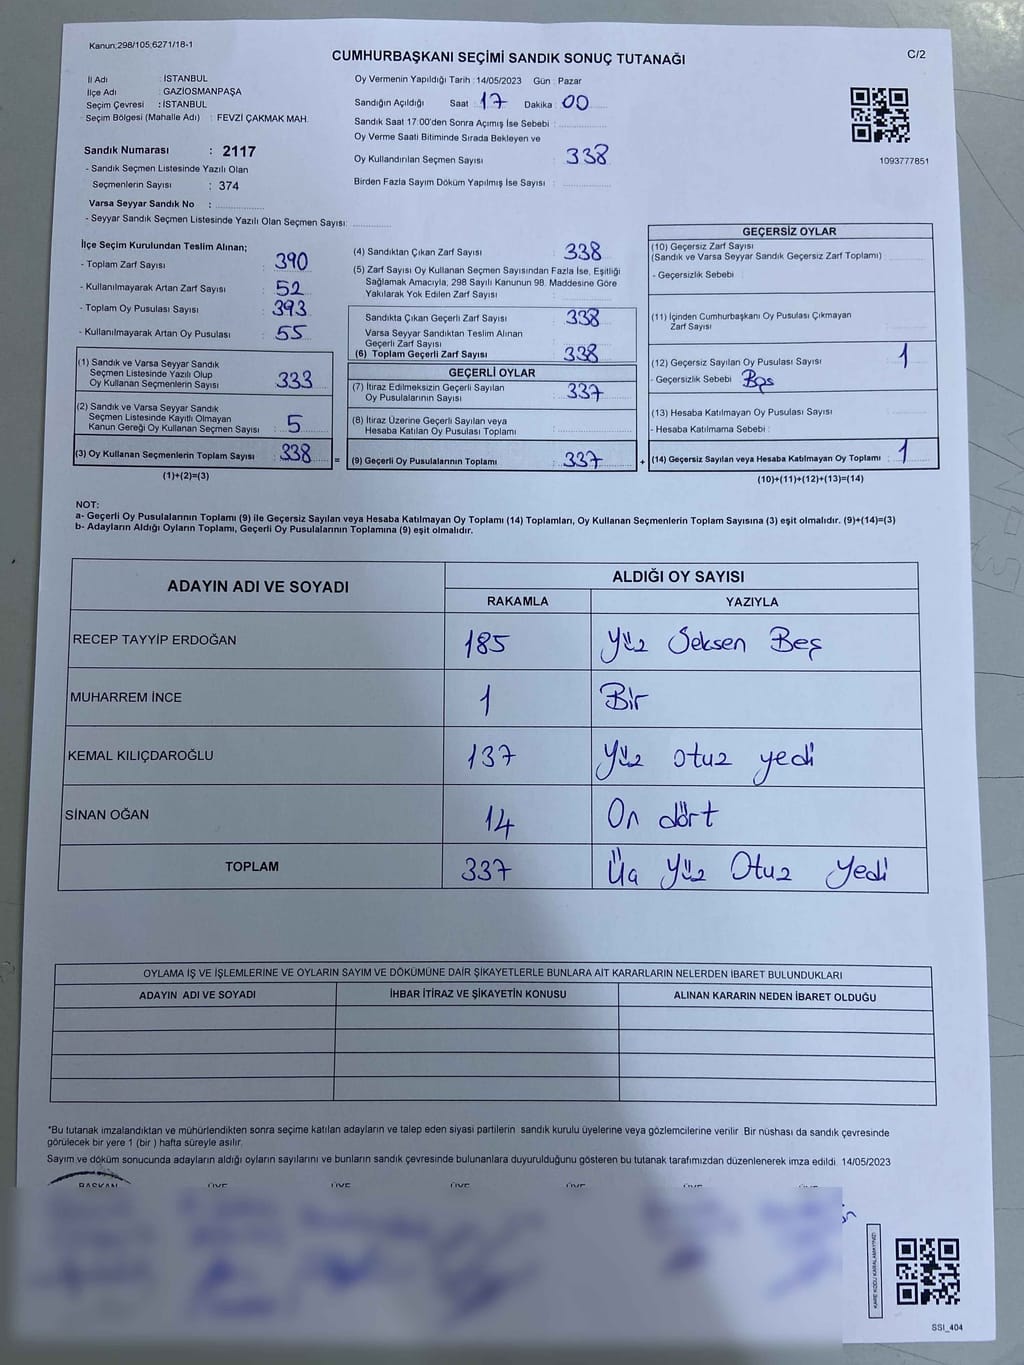 Kanun;298/105;6271/18-1
CUMHURBAŞKANI SEÇİMİ SANDIK SONUÇ TUTANAĞI
C/2
İl Adı : İSTANBUL
İlçe Adı : GAZİOSMANPAŞA
Seçim Çevresi : İSTANBUL
Seçim Bölgesi (Mahalle Adı) : FEVZİ ÇAKMAK MAH.
Sandık Numarası : 2117
- Sandık Seçmen Listesinde Yazılı Olan
Seçmenlerin Sayısı : 374
Varsa Seyyar Sandık No :
- Seyyar Sandık Seçmen Listesinde Yazılı Olan Seçmen Sayısı:
Oy Vermenin Yapıldığı Tarih : 14/05/2023 Gün : Pazar
Sandığın Açıldığı Saat : 17 Dakika : 00
Sandık Saat 17:00'den Sonra Açımış İse Sebebi :
Oy Verme Saati Bitiminde Sırada Bekleyen ve
Oy Kullandırılan Seçmen Sayısı : 338
Birden Fazla Sayım Döküm Yapılmış İse Sayısı :
1093777851
İlçe Seçim Kurulundan Teslim Alınan;
- Toplam Zarf Sayısı : 390
- Kullanılmayarak Artan Zarf Sayısı : 52
- Toplam Oy Pusulası Sayısı : 393
- Kullanılmayarak Artan Oy Pusulası : 55
(1) Sandık ve Varsa Seyyar Sandık
Seçmen Listesinde Yazılı Olup
Oy Kullanan Seçmenlerin Sayısı : 333
(2) Sandık ve Varsa Seyyar Sandık
Seçmen Listesinde Kayıtlı Olmayan
Kanun Gereği Oy Kullanan Seçmen Sayısı : 5
(3) Oy Kullanan Seçmenlerin Toplam Sayısı : 338
(1)+(2)=(3)
(4) Sandıktan Çıkan Zarf Sayısı : 338
(5) Zarf Sayısı Oy Kullanan Seçmen Sayısından Fazla İse, Eşitliği
Sağlamak Amacıyla, 298 Sayılı Kanunun 98. Maddesine Göre
Yakılarak Yok Edilen Zarf Sayısı :
Sandıkta Çıkan Geçerli Zarf Sayısı : 338
Varsa Seyyar Sandıktan Teslim Alınan
Geçerli Zarf Sayısı :
(6) Toplam Geçerli Zarf Sayısı : 338
GEÇERLİ OYLAR
(7) İtiraz Edilmeksizin Geçerli Sayılan
Oy Pusulalarının Sayısı : 337
(8) İtiraz Üzerine Geçerli Sayılan veya
Hesaba Katılan Oy Pusulası Toplamı :
= (9) Geçerli Oy Pusulalarının Toplamı : 337 +
GEÇERSİZ OYLAR
(10) Geçersiz Zarf Sayısı
(Sandık ve Varsa Seyyar Sandık Geçersiz Zarf Toplamı) :
- Geçersizlik Sebebi :
(11) İçinden Cumhurbaşkanı Oy Pusulası Çıkmayan
Zarf Sayısı :
(12) Geçersiz Sayılan Oy Pusulası Sayısı : 1
- Geçersizlik Sebebi : Boş
(13) Hesaba Katılmayan Oy Pusulası Sayısı :
- Hesaba Katılmama Sebebi :
(14) Geçersiz Sayılan veya Hesaba Katılmayan Oy Toplamı : 1
(10)+(11)+(12)+(13)=(14)
NOT:
a- Geçerli Oy Pusulalarının Toplamı (9) ile Geçersiz Sayılan veya Hesaba Katılmayan Oy Toplamı (14) Toplamları, Oy Kullanan Seçmenlerin Toplam Sayısına (3) eşit olmalıdır. (9)+(14)=(3)
b- Adayların Aldığı Oyların Toplamı, Geçerli Oy Pusulalarının Toplamına (9) eşit olmalıdır.
ADAYIN ADI VE SOYADI ALDIĞI OY SAYISI
RAKAMLA YAZIYLA
RECEP TAYYİP ERDOĞAN 185 Yüz Seksen Beş
MUHARREM İNCE 1 Bir
KEMAL KILIÇDAROĞLU 137 Yüz otuz yedi
SİNAN OĞAN 14 On dört
TOPLAM 337 Üç Yüz Otuz Yedi
OYLAMA İŞ VE İŞLEMLERİNE VE OYLARIN SAYIM VE DÖKÜMÜNE DAİR ŞİKAYETLERLE BUNLARA AİT KARARLARIN NELERDEN İBARET BULUNDUKLARI
ADAYIN ADI VE SOYADI İHBAR İTİRAZ VE ŞİKAYETİN KONUSU ALINAN KARARIN NEDEN İBARET OLDUĞU
*Bu tutanak imzalandıktan ve mühürlendikten sonra seçime katılan adayların ve talep eden siyasi partilerin sandık kurulu üyelerine veya gözlemcilerine verilir Bir nüshası da sandık çevresinde
görülecek bir yere 1 (bir ) hafta süreyle asılır.
Sayım ve döküm sonucunda adayların aldığı oyların sayılarını ve bunların sandık çevresinde bulunanlara duyurulduğunu gösteren bu tutanak tarafımızdan düzenlenerek imza edildi. 14/05/2023
BAŞKAN ÜYE ÜYE ÜYE ÜYE ÜYE ÜYE
KARE KODU KARALAMAYINIZ!
SSI_404